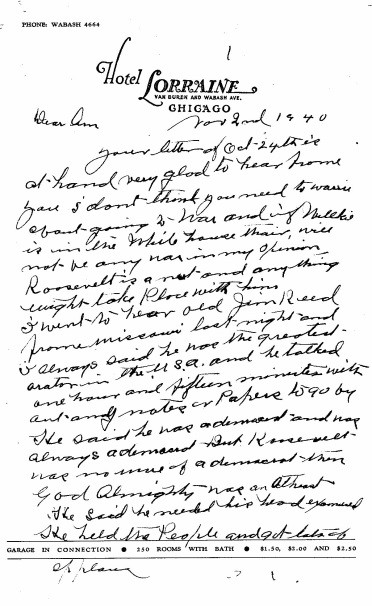 PHONE: WABASH 4664
1
Hotel LORRAINE
VAN BUREN AND WABASH AVE.
CHICAGO
Nov 2nd 1940
Dear Ann
your letter of Oct-24th is
at hand very glad to hear frome
you I dont think you need to worrie
about going to War and if Wilkie
is in the White house their, will
not be any war in my opinion
Roosevelt is a nut and anything
might take Place with him
I went to hear old Jim Reed
frome missouri last night and
I always said he was the greatest
orator in the U.S.A. and he talked
one hour and fifteen minutes with
out any notes or Papers to go by
He said he was a democrat and was
always a democrat But Roosevelt
was no more of a democrat then
God Almighty was an Atheast
He said he needed his head examined
He held the People and got lots of
GARAGE IN CONNECTION • 250 ROOMS WITH BATH • $1.50, $2.00 AND $2.50